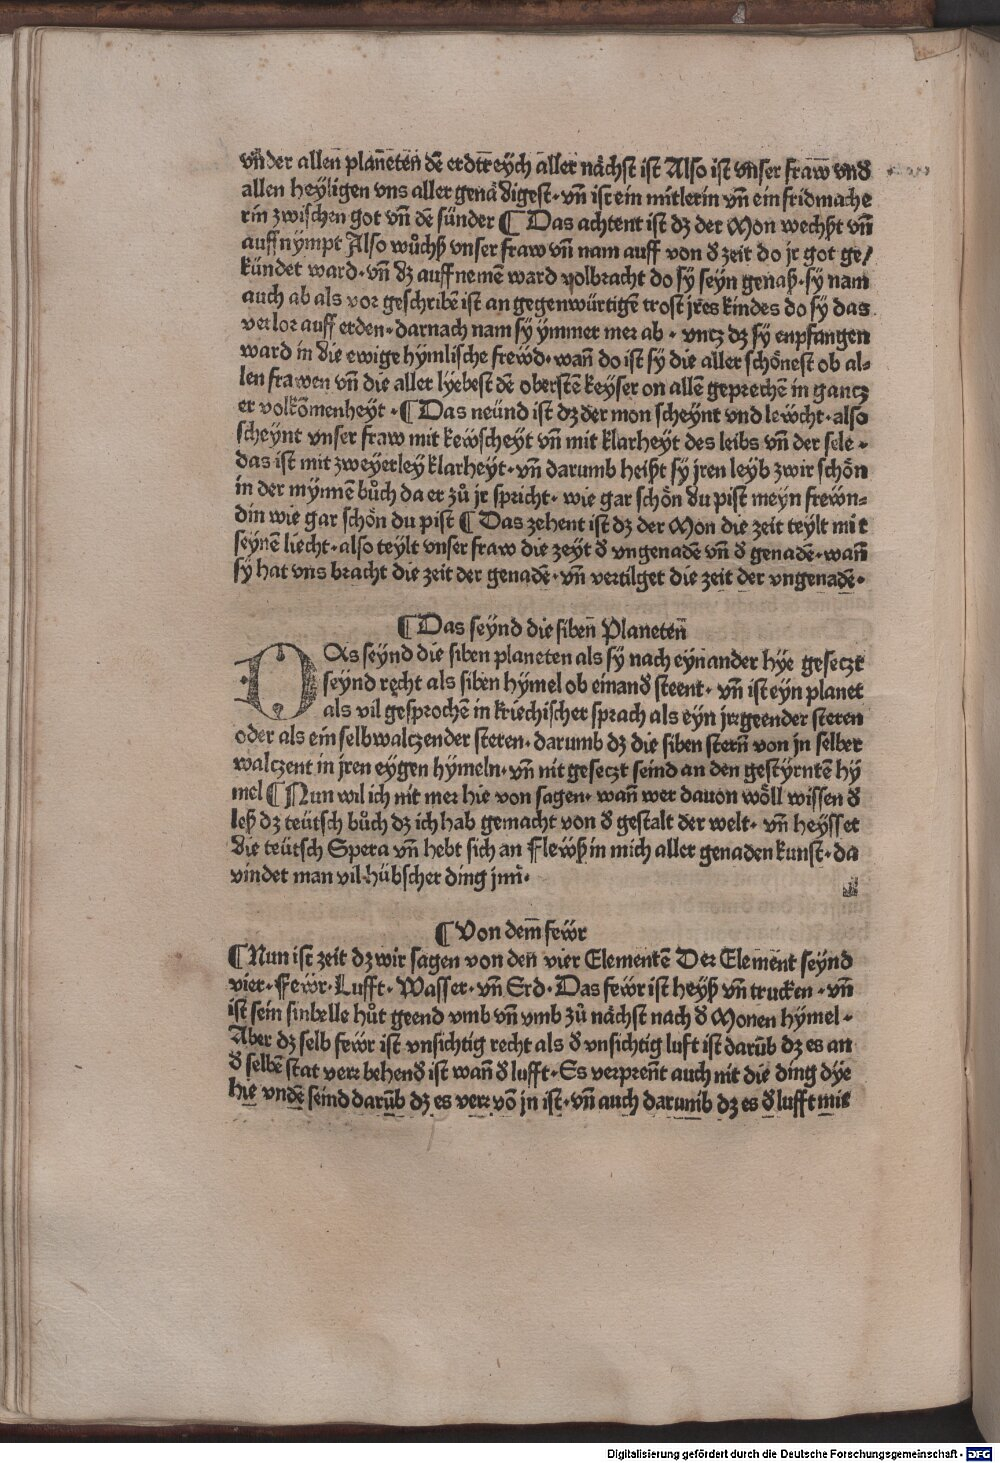 vn̄der allen planeten dē erdtreych aller nächst ist Also ist vnser fraw vnd
allen heyligen vns aller genädigest · vn̄ ist ein mitlerin vn̄ ein fridmache
rin zwischen got vn̄ dē sünder ¶ Das achtent ist dz der Mon wechßt vn̄
auff nympt Also wůchß vnser fraw vn̄ nam auff von d̕ zeit do jr got ge/
kündet ward · vn̄ dz auff nemē ward volbracht do sy seyn genaß · sy nam
auch ab als vor geschribē ist an gegenwürtigē trost jres kindes do sy das
verlor auff erden · darnach nam sy ymmer mer ab · vntz dz sy enpfangen
ward in die ewige hymlische frewd · wan̄ do ist sy die aller schönest ob al-
len frawen vn̄ die aller lyebest dē oberstē keyser on allē geprechē in gantz
er volkōmenheyt · ¶ Das neünd ist dz der mon scheynt vnd lewcht · also
scheynt vnser fraw mit kewscheyt vn̄ mit klarheyt des leibs vn̄ der sele ·
das ist mit zweyerley klarheyt · vn̄ darumb heißt sy jren leyb zwir schön
in der mynnē bůch da er zů jr spricht · wie gar schön du pist meyn frewn-
din wie gar schön du pist ¶ Das zehent ist dz der Mon die zeit teylt mit
seynē liecht · also teylt vnser fraw die zeyt d̕ vngenadē vn̄ d̕ genadē · wan̄
sy hat vns bracht die zeit der genadē · vn̄ vertilget die zeit der vngenadē ·
¶ Das seynd die siben Planeten
DAs seynd die siben planeten als sy nach eynander hye gesetzt
seynd recht als siben hymel ob einand̕ steent · vn̄ ist eyn planet
als vil gesprochē in kriechischer sprach als eyn jrrgeender steren
oder als ein selbwalczender steren · darumb dz die siben stern̄ von jn selber
walczent in jren eygen hymeln · vn̄ nit geseczt seind an den gestyrntē hy
mel ¶ Nun wil ich nit mer hie von sagen · wan̄ wer dauon wöll wissen d̕
leß dz teütsch bůch dz ich hab gemacht von d̕ gestalt der welt · vn̄ heysset
die teütsch Spera vn̄ hebt sich an Flewß in mich aller genaden kunst · da
vindet man vil hübscher ding jnn̄ ·
¶ Von dem̄ fewr
¶ Nun ist zeit dz wir sagen von den vier Elementē Der Element seynd
vier · Fewr · Lufft · Wasser · vn̄ Erd · Das fewr ist heyß vn̄ trucken · vn̄
ist sein sinbelle hůt geend vmb vn̄ vmb zů nächst nach d̕ Monen hymel ·
Aber dz selb fewr ist vnsichtig recht als d̕ vnsichtig luft ist darūb dz es an
d̕ selbē stat verr behend̕ ist wan̄ d̕ lufft · Es verpren̄t auch nit die ding dye
hie vndē seind darūb dz es verr vō jn ist · vn̄ auch darumb dz es d̕ lufft mit
Digitalisierung gefördert durch die Deutsche Forschungsgemeinschaft - DFG